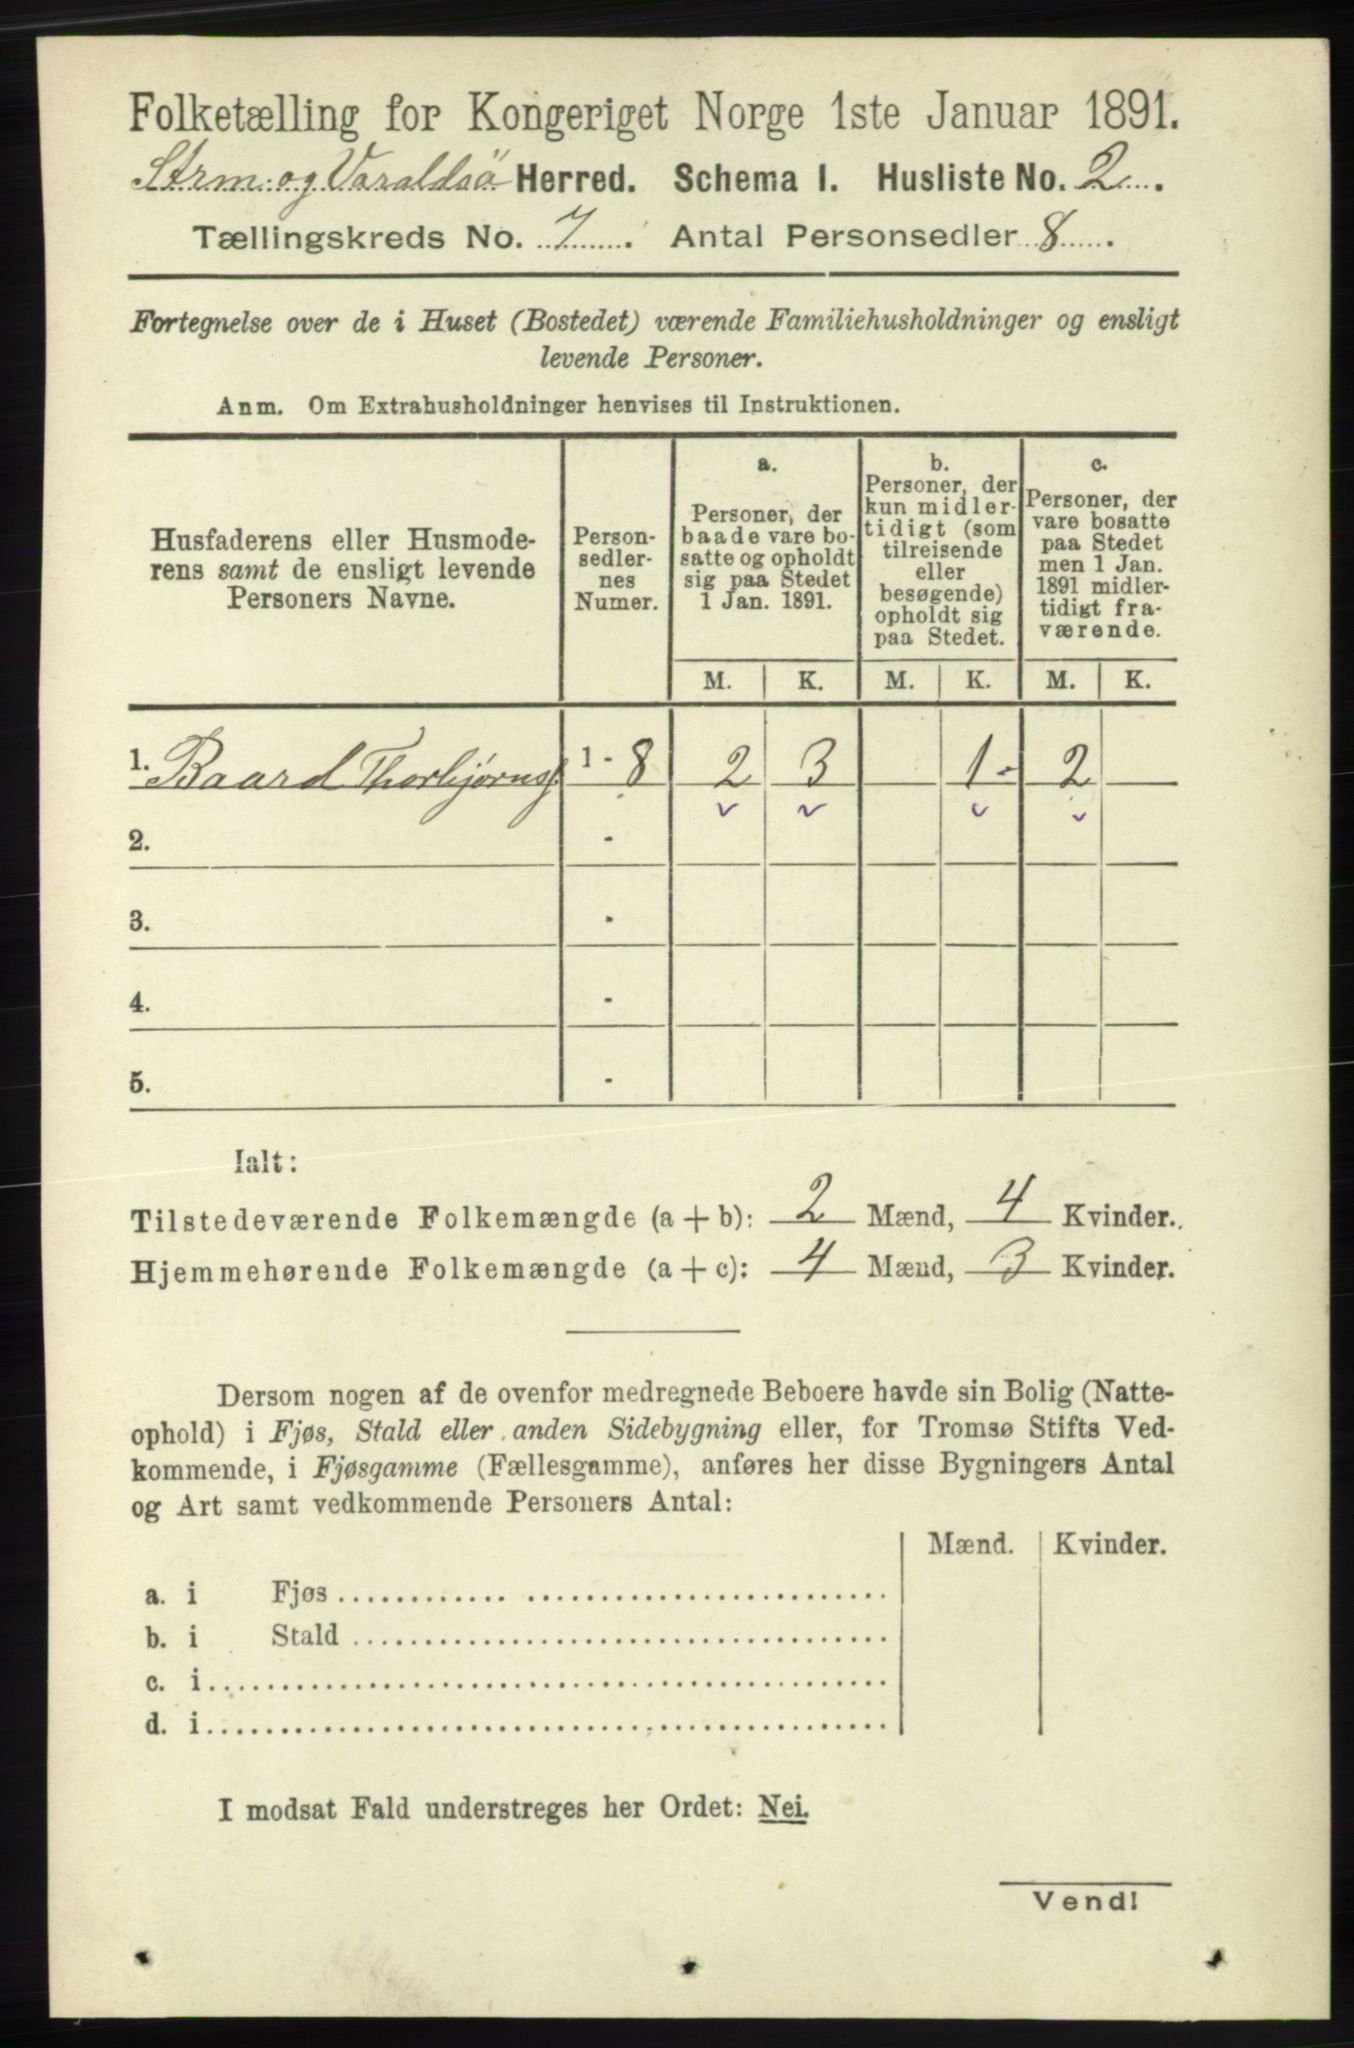 Folketælling for Kongeriget Norge 1ste Januar 1891.
Strm. og Varaldsö Herred. Schema I. Husliste No. 2
Tællingskreds No. 7. Antal Personsedler 8.
Fortegnelse over de i Huset (Bostedet) værende Familiehusholdninger og ensligt
levende Personer.
Anm. Om Extrahusholdninger henvises til Instruktionen.
Husfaderens eller Husmode-
rens samt de ensligt levende
Personers Navne.
Person-
sedler-
nes
Numer.
a.
Personer, der
baade vare bo-
satte og opholdt
sig paa Stedet
1 Jan. 1891.
b.
Personer, der
kun midler-
tidigt (som
tilreisende
eller
besøgende)
opholdt sig
paa Stedet.
c.
Personer, der
vare bosatte
paa Stedet
men 1 Jan.
1891 midler-
tidigt fra-
værende.
M. K. M. K. M. K.
1. Baard Thorbjørns. 1 - 8 2 3 1 2
2. -
3. -
4. -
5. -
Ialt:
Tilstedeværende Folkemængde (a + b): 2 Mænd, 4 Kvinder.
Hjemmehørende Folkemængde (a + c): 4 Mænd, 3 Kvinder.
Dersom nogen af de ovenfor medregnede Beboere havde sin Bolig (Natte-
ophold) i Fjøs, Stald eller anden Sidebygning eller, for Tromsø Stifts Ved-
kommende, i Fjøsgamme (Fællesgamme), anføres her disse Bygningers Antal
og Art samt vedkommende Personers Antal:
Mænd. Kvinder.
a. i Fjøs
b. i Stald
c. i
d. i
I modsat Fald understreges her Ordet: Nei.
Vend!